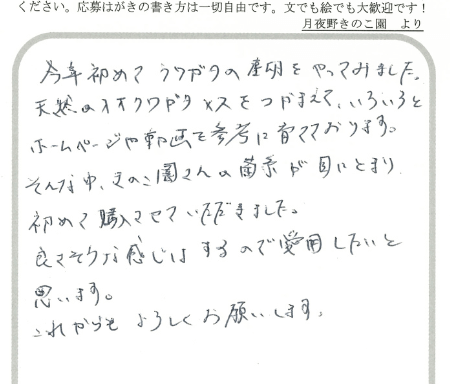 ください。応募はがきの書き方は一切自由です。文でも絵でも大歓迎です！
月夜野きのこ園　より
今年初めてクワガタの産卵をやってみました。
天然のオオクワガタメスをつかまえて、いろいろと
ホームページや動画を参考に育てております。
そんな中、きのこ園さんの菌糸が目にとまり
初めて購入させていただきました。
良さそうな感じはするので愛用したいと
思います。
これからもよろしくお願いします。